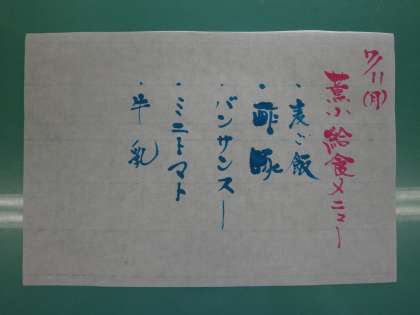 7/11(月)
給食メニュー
・麦ご飯
・酢豚
・バンサンスー
・ミニトマト
・牛乳